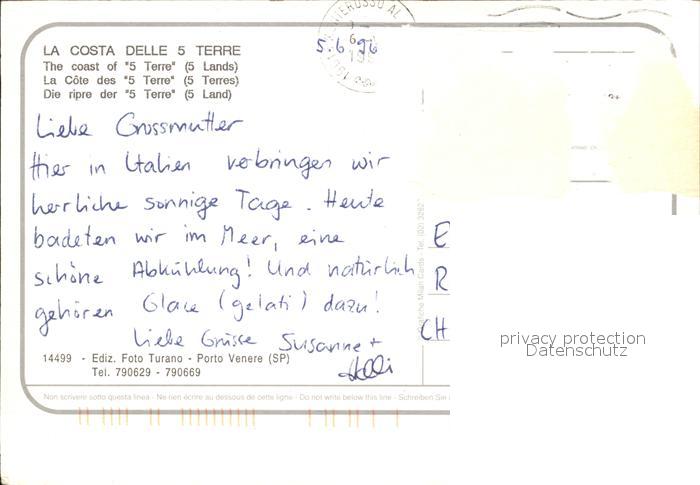 LA COSTA DELLE 5 TERRE
The coast of "5 Terre" (5 Lands)
La Côte des "5 Terre" (5 Terres)
Die ripre der "5 Terre" (5 Land)
5.6.96
Liebe Grossmutter
Hier in Italien verbringen wir
herrliche sonnige Tage. Heute
badeten wir im Meer, eine
schöne Abkühlung! Und natürlich
gehören Glace (gelati) dazu!
Liebe Grüsse Susanne +
14499 - Ediz. Foto Turano - Porto Venere (SP)
Tel. 790629 - 790669
Non scrivere sotto questa linea - Ne rien écrire au dessous de cette ligne - Do not write below this line - Schreiben Sie
E
R
CH
privacy protection
Datenschutz